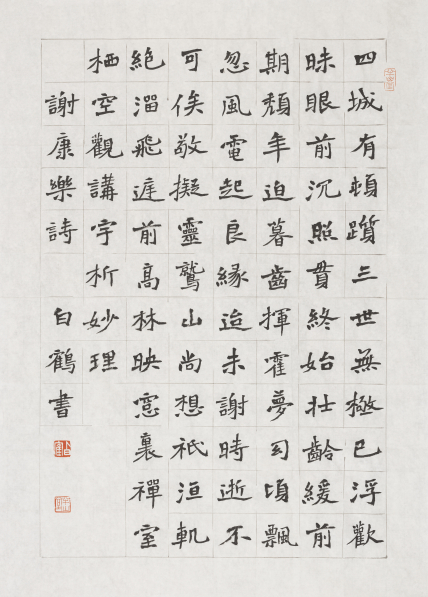 四城有頓躓三世無極已浮歡
昧眼前沉照貫終始壯齡緩前
期頹年迫暮齒揮霍夢幻頃飄
忽風電起良緣迨未謝時逝不
可俟敬擬靈鷲山尚想祇洹軌
絕溜飛庭前高林映窓裏禪室
栖空觀講宇析妙理
謝康樂詩 白鶴書